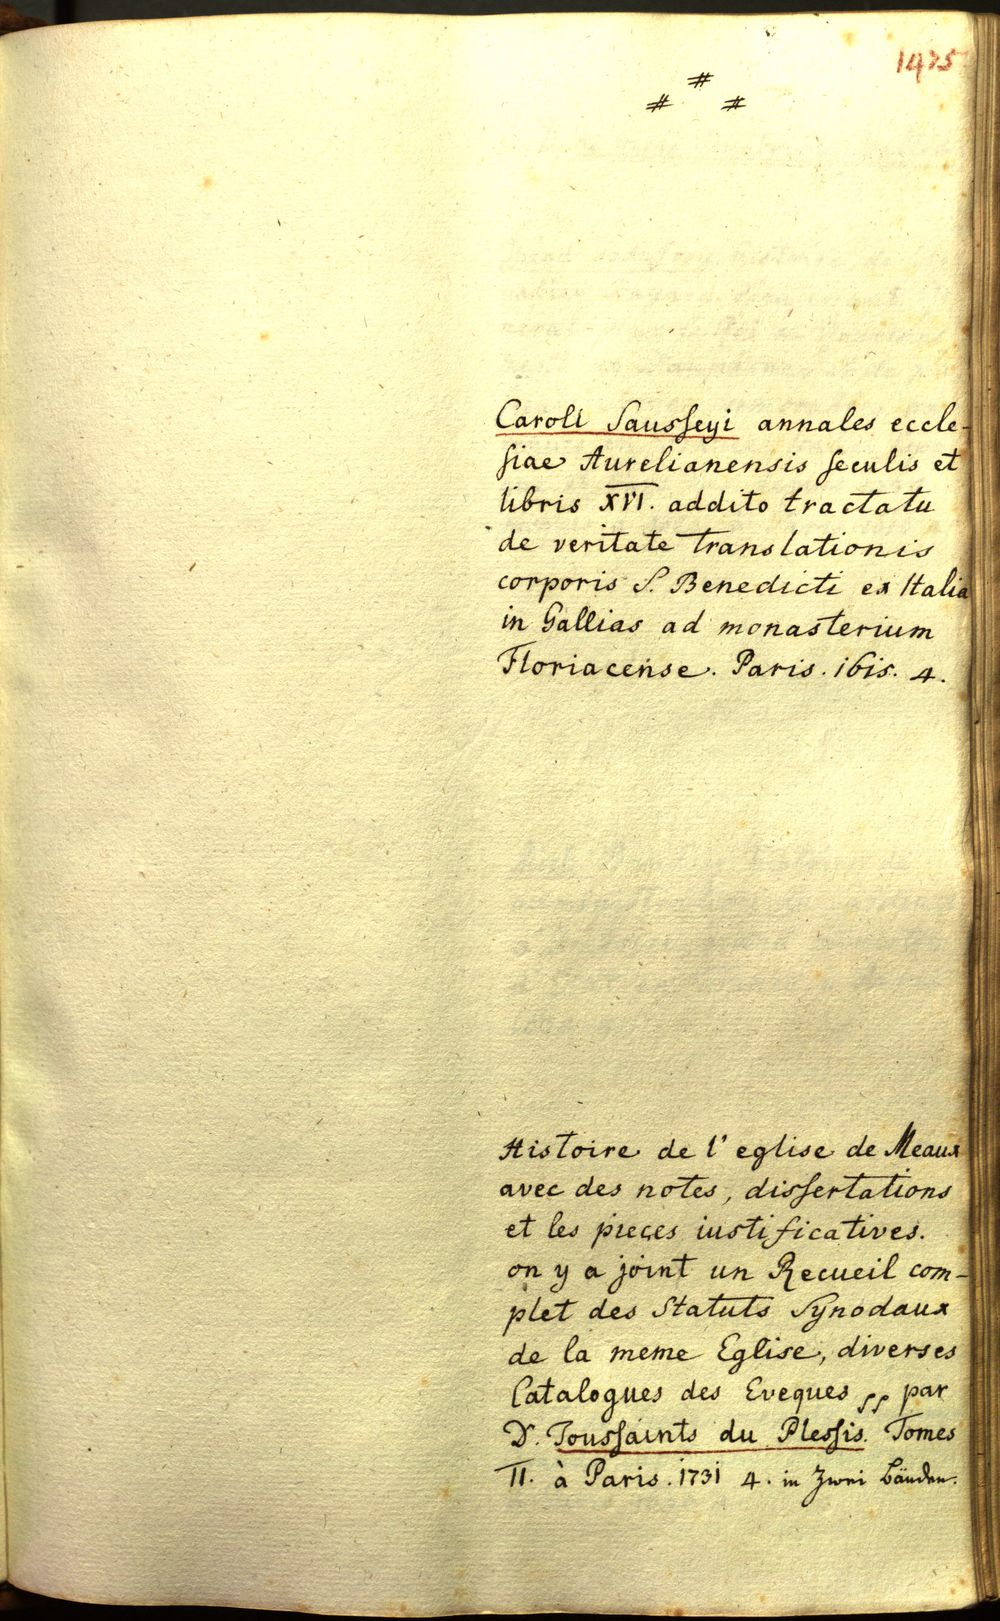 1425
#
# #
Caroli Sausseyi annales eccle-
siae Aurelianensis seculis et
libris XVI. addito tractatu
de veritate translationis
corporis S. Benedicti ex Italia
in Gallias ad monasterium
Floriacense. Paris. 1615. 4.
Histoire de l'eglise de Meaux
avec des notes, dissertations
et les pieces iustificatives.
on y a joint un Recueil com-
plet des Statuts Synodaux
de la meme Eglise, diverses
Catalogues des Eveques par
D. Toussaints du Plessis. Tomes
II. à Paris. 1731 4. in Zwei Bänden.